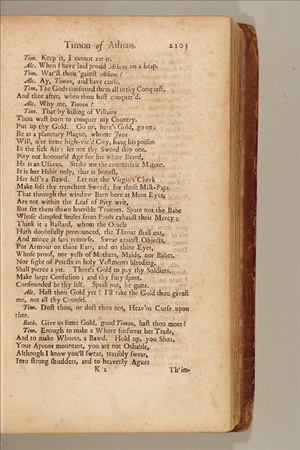 Timon of Athens. 2203
Tim. Keep it, I cannot eat it.
Alc. When I have laid proud Athens on a heap.
Tim. War'st thou 'gainst Athens?
Alc. Ay, Timon, and have cause.
Tim. The Gods confound them all in thy Conquest,
And thee after, when thou hast conquer'd.
Alc. Why me, Timon?
Tim. That by killing of Villains
Thou wast born to conquer my Country.
Put up thy Gold. Go on, here's Gold, go on;
Be as a planetary Plague, when Jove
Will, o'er some high-vic'd City, hang his poison
In the sick Air: let not thy Sword skip one,
Pity not honour'd Age for his white Beard,
He is an Usurer. Strike me the counterfeit Matron,
It is her Habit only, that is honest,
Her self's a Bawd. Let not the Virgin's Cheek
Make soft thy trenchant Sword; for those Milk-Paps
That through the window Barn bore at Mens Eyes,
Are not within the Leaf of Pity writ,
But set them down horrible Traitors. Spare not the Babe
Whose dimpled smiles from Fools exhaust their Mercy;
Think it a Bastard, whom the Oracle
Hath doubtfully pronounced, the Throat shall cut,
And mince it sans remorse. Swear against Objects,
Put Armour on thine Ears, and on thine Eyes,
Whose proof, nor yells of Mothers, Maids, nor Babes,
Nor sight of Priests in holy Vestments bleeding,
Shall pierce a jot. There's Gold to pay thy Soldiers.
Make large Confusion; and thy fury spent,
Confounded be thy self. Speak not, be gone.
Alc. Hast thou Gold yet? I'll take the Gold thou givest
me, not all thy Counsel.
Tim. Dost thou, or dost thou not, Heav'ns Curse upon
thee.
Both. Give us some Gold, good Timon, hast thou more?
Tim. Enough to make a Whore forswear her Trade,
And to make Whores, a Bawd. Hold up, you Sluts,
Your Aprons mountant, you are not Othable,
Although I know you'll swear, terribly swear,
Into strong shudders, and to heavenly Agues
K 2 Th'im-